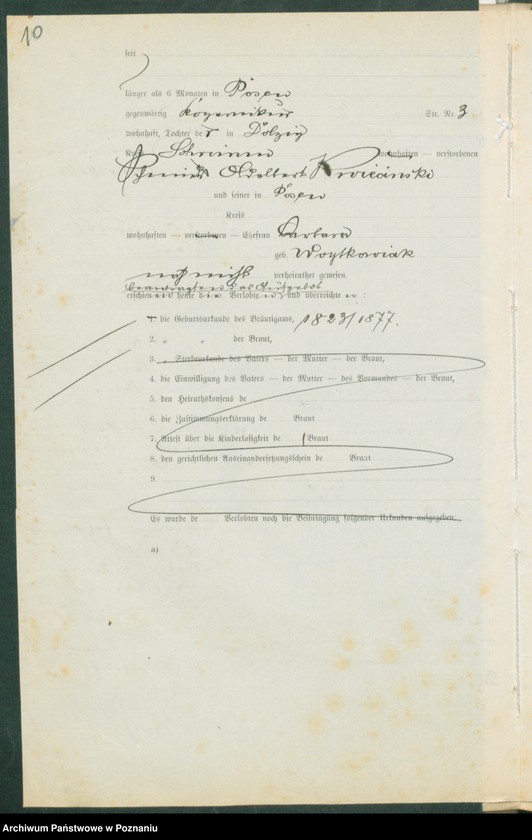 10
seit
länger als 6 Monaten in Posen
gegenwärtig Str. Nr. 3
wohnhaft, Tochter der in Dolzig
Kreis Schrimm wohnhaften — verstorbenen
Schmied Adalbert
und seiner in Posen
Kreis
wohnhaften — verstorbenen — Ehefrau Barbara
geb. Woytkowiak
noch nicht verheirathet gewesen.
beantragten das Aufgebot
erschienen heute die Verlobten und überreichten:
1. die Geburtsurkunde des Bräutigams, 1823/1877.
2. " " der Braut,
3. " Sterbeurkunde des Vaters — der Mutter — der Braut,
4. die Einwilligung des Vaters — der Mutter — des Vormundes — der Braut,
5. den Heirathskonsens de
6. die Zustimmungserklärung de Braut
7. Attest über die Kinderlosigkeit de Braut
8. den gerichtlichen Auseinandersetzungsschein de Braut
9.
Es wurde de Verlobten noch die Beibringung folgender Urkunden aufgegeben:
a)
Archiwum Państwowe w Poznaniu